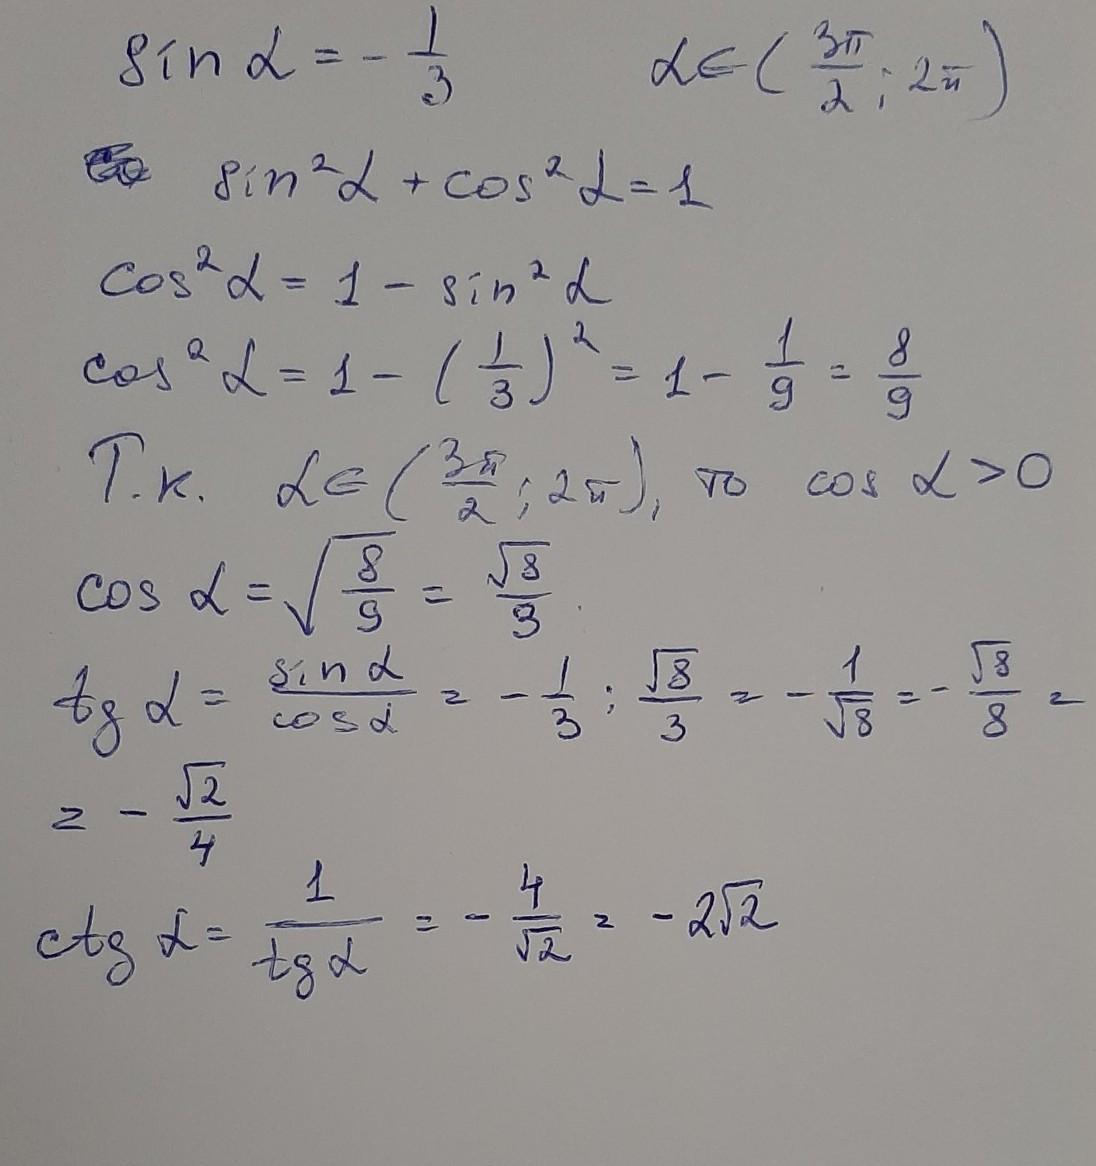 sin α = - 1/3 α ∈ (3π/2 ; 2π)
sin²α + cos²α = 1
cos²α = 1 - sin²α
cos²α = 1 - (1/3)² = 1 - 1/9 = 8/9
Т.к. α ∈ (3π/2 ; 2π), то cos α > 0
cos α = √(8/9) = √8/3
tg α = sin α/cos α = - 1/3 : √8/3 = - 1/√8 = - √8/8 =
= - √2/4
ctg α = 1/tg α = - 4/√2 = - 2√2